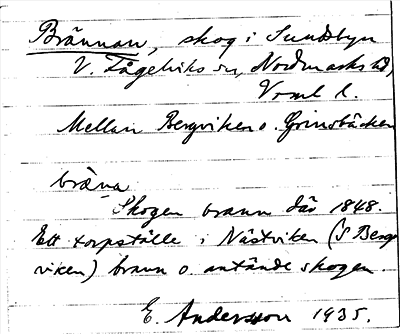 Brännan, skog i Sundsbyn
V. Fågelviks sn, Nordmarks hd,
Vrml l.
Mellan Bergviken o. Grinsbäcken
bräna
Skogen brann där 1848.
Ett torpställe i Nästviken (S Berg-
viken) brann o. antände skogen.
E. Andersson 1935.